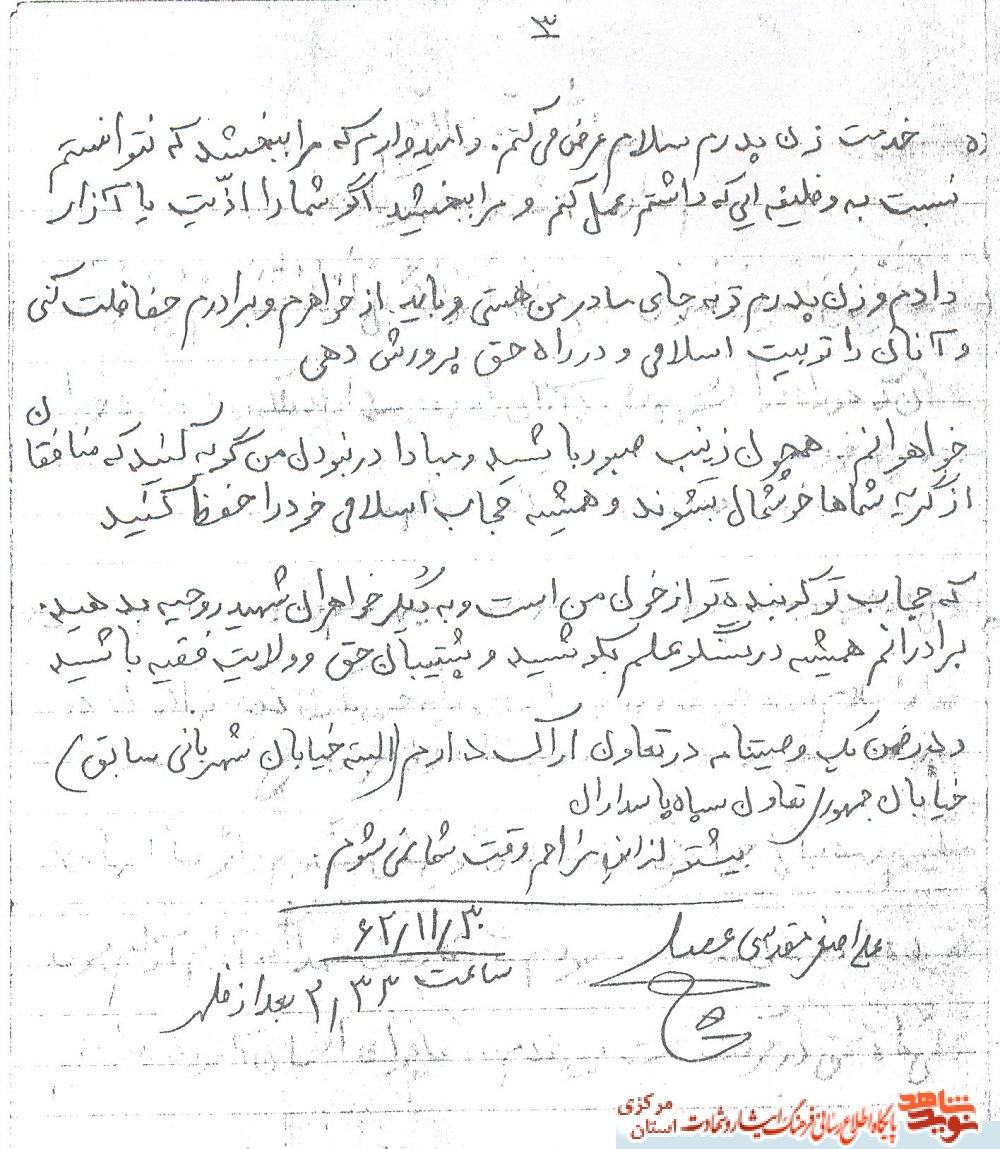 ۳
خدمت زن پدرم سلام عرض می‌کنم. و امیدوارم که مرا ببخشید که نتوانستم
نسبت به وظیفه ایی که داشتم عمل کنم و مرا ببخشید اگر شما را اذیّت یا آزار
دادم و زن پدرم تو به جای مادر من هستی و باید از خواهرم و برادرم حفاظت کنی
و آنان را تربیت اسلامی و در راه حق پرورش دهی
خواهرانم. همچون زینب صبور باشید و مبادا در نبودن من گریه کنید که منافقان
از گریه شماها خوشحال بشوند و همیشه حجاب اسلامی خود را حفظ کنید
که حجاب تو کوبنده تر از خون من است و به دیگر خواهران شهید روحیه بدهید.
برادرانم همیشه در سنگر علم بکوشید و پشتیبان حق و ولایت فقیه باشید
و در ضمن یک وصیتنامه در تعاون اراک دارم (البته خیابان شهربانی سابق)
خیابان جمهوری تعاون سپاه پاسداران
بیشتر از این مزاحم وقت شما نمی شوم.
علی اصغر مقدسی
۶۲/۱۱/۳۰
ساعت ۲٫۳۳ بعد از ظهر
نوید شاهد
پایگاه اطلاع رسانی فرهنگ ایثار و شهادت
استان مرکزی